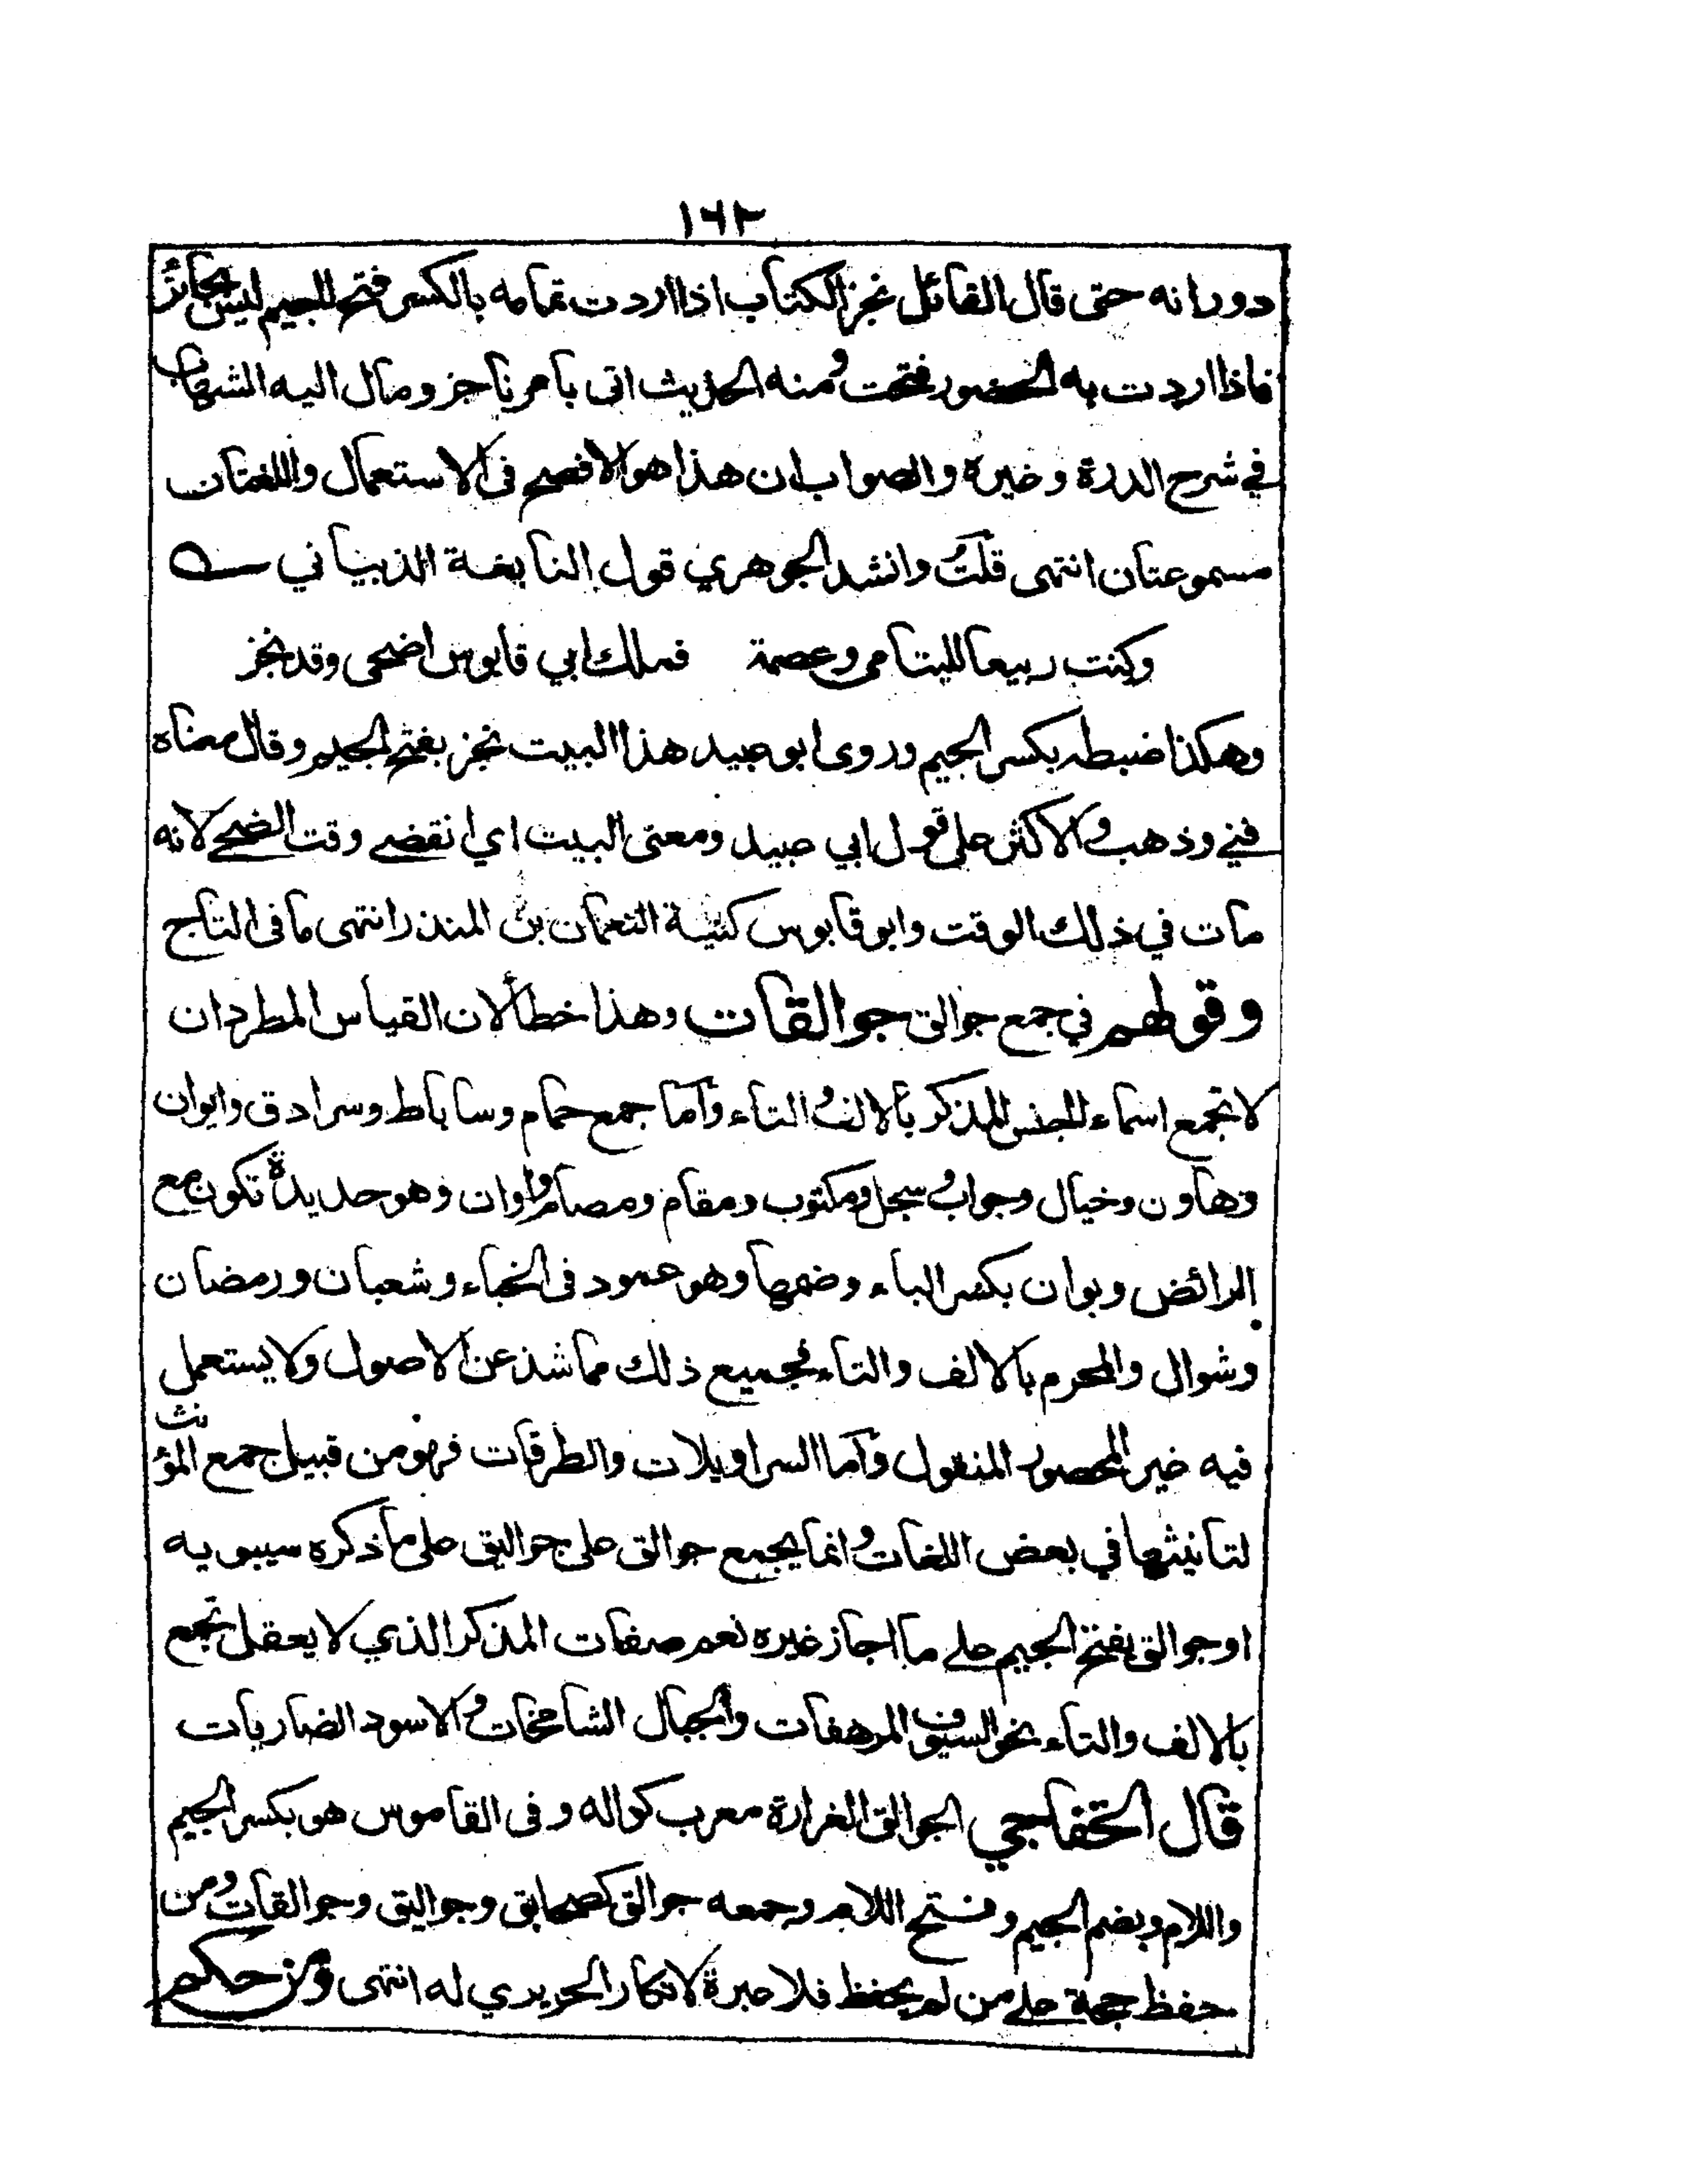 ١٦٢
دورانه حتى قال القائل نجز الكتاب اذا اردت تمامه بالكسر فتح الجيم ليس بجائز
فاذا اردت به الحضور فتحت ومنه الحديث اتى بامر ناجز ومال اليه الشهاب
في شرح الدرة وغيره والصواب ان هذا هو الافصح فى الاستعمال واللغتان
مسموعتان انتهى قلت وانشد الجوهري قول النابغة الذبياني
وكنت ربيعا لليتامى وعصمة فملك ابي قابوس اضحى وقد نجز
وهكذا ضبطه بكسر الجيم وروى ابو عبيد هذا البيت نجز بفتح الجيم وقال معناه
فني وذهب والاكثر على قول ابي عبيد ومعنى البيت اي انقضى وقت الضحى لانه
مات في ذلك الوقت وابو قابوس كنية النعمان بن المنذر انتهى ما فى التاج
وقولهم في جمع جوالق جوالقات وهذا خطأ لان القياس المطرد ان
لا تجمع اسماء الجنس المذكر بالالف والتاء وآما جمع حمام وساباط وسرادق وايوان
وهاون وخيال وجواب وسجل ومكتوب ومقام ومصام واوان وهو حديدة تكون مع
الرائض وبوان بكسر الباء وضمها وهو عمود فى الخباء وشعبان ورمضان
وشوال والمحرم بالالف والتاء فجميع ذلك مما شذ عن الاصول ولا يستعمل
فيه غير المحصور المنقول وآما السراويلات والطرقات فهو من قبيل جمع المؤنث
لتانيثها في بعض اللغات وانما يجمع جوالق على جواليق على ما ذكره سيبويه
او جوالق بفتح الجيم على ما اجاز غيره نعم صفات المذكر الذي لا يعقل تجمع
بالالف والتاء نحو السيوف المرهفات والجبال الشامخات والاسود الضاريات
قال الخفاجي الجوالق الغرارة معرب كواله وفى القاموس هو بكسر الجيم
واللام وبضم الجيم وفتح اللام وجمعه جوالق كصحابق وجواليق وجوالقات ومن
حفظ حجة على من لم يحفظ فلا عبرة لانكار الحريري له انتهى ومن حكم